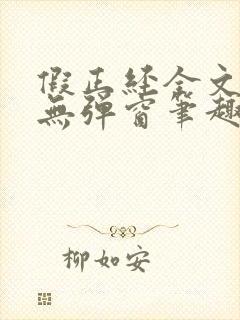 假正經全文
無彈窗筆趣
柳如安